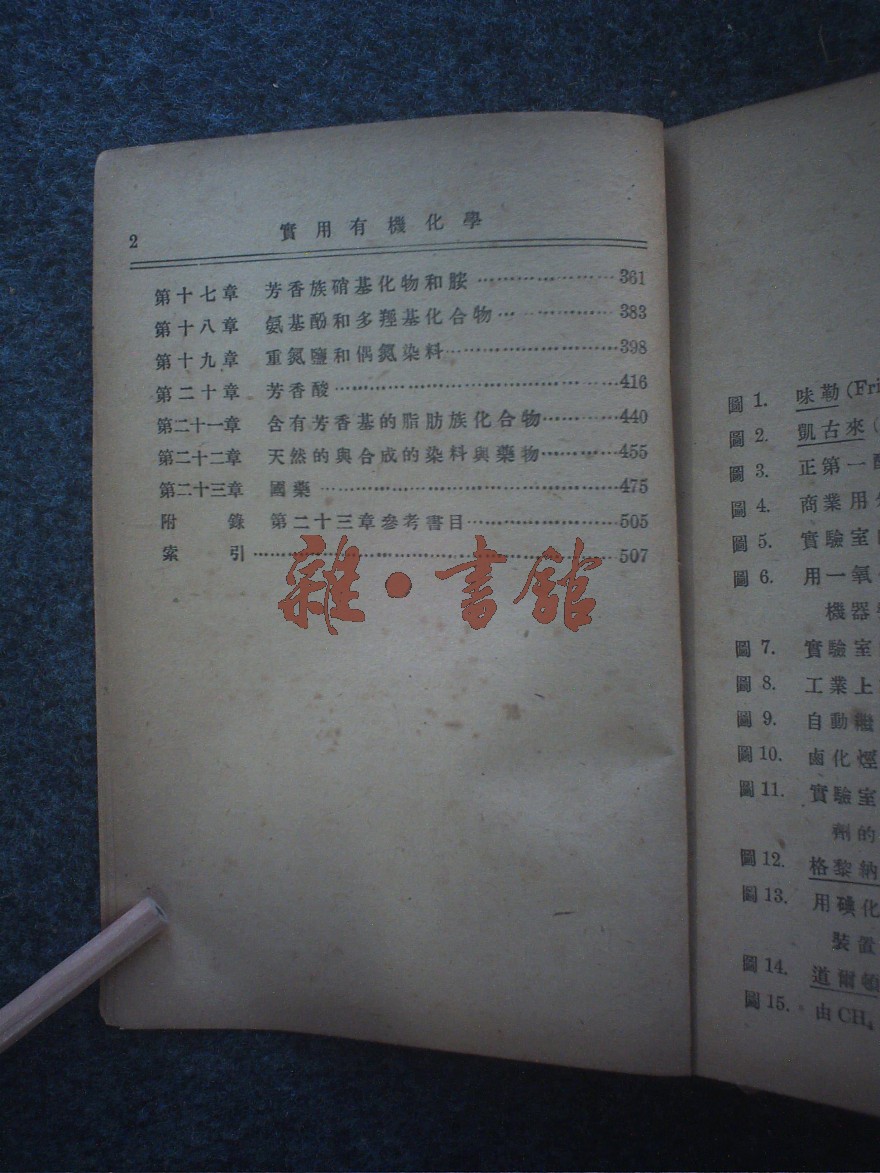 2 實用有機化學
第十七章 芳香族硝基化物和胺……………………361
第十八章 氨基酚和多羥基化合物……………………383
第十九章 重氮鹽和偶氮染料……………………398
第二十章 芳香酸……………………416
第二十一章 含有芳香基的脂肪族化合物……………………440
第二十二章 天然的與合成的染料與藥物……………………455
第二十三章 國藥……………………475
附錄 第二十三章參考書目……………………505
索引……………………507
雜·書館
圖 1. 味勒(Fri
圖 2. 凱古來(
圖 3. 正第一
圖 4. 商業用
圖 5. 實驗室
圖 6. 用一氧
機器
圖 7. 實驗室
圖 8. 工業上
圖 9. 自動繼
圖 10. 鹵化烴
圖 11. 實驗室
劑的
圖 12. 格黎納
圖 13. 用碘化
裝置
圖 14. 道爾頓
圖 15. 由CH₄